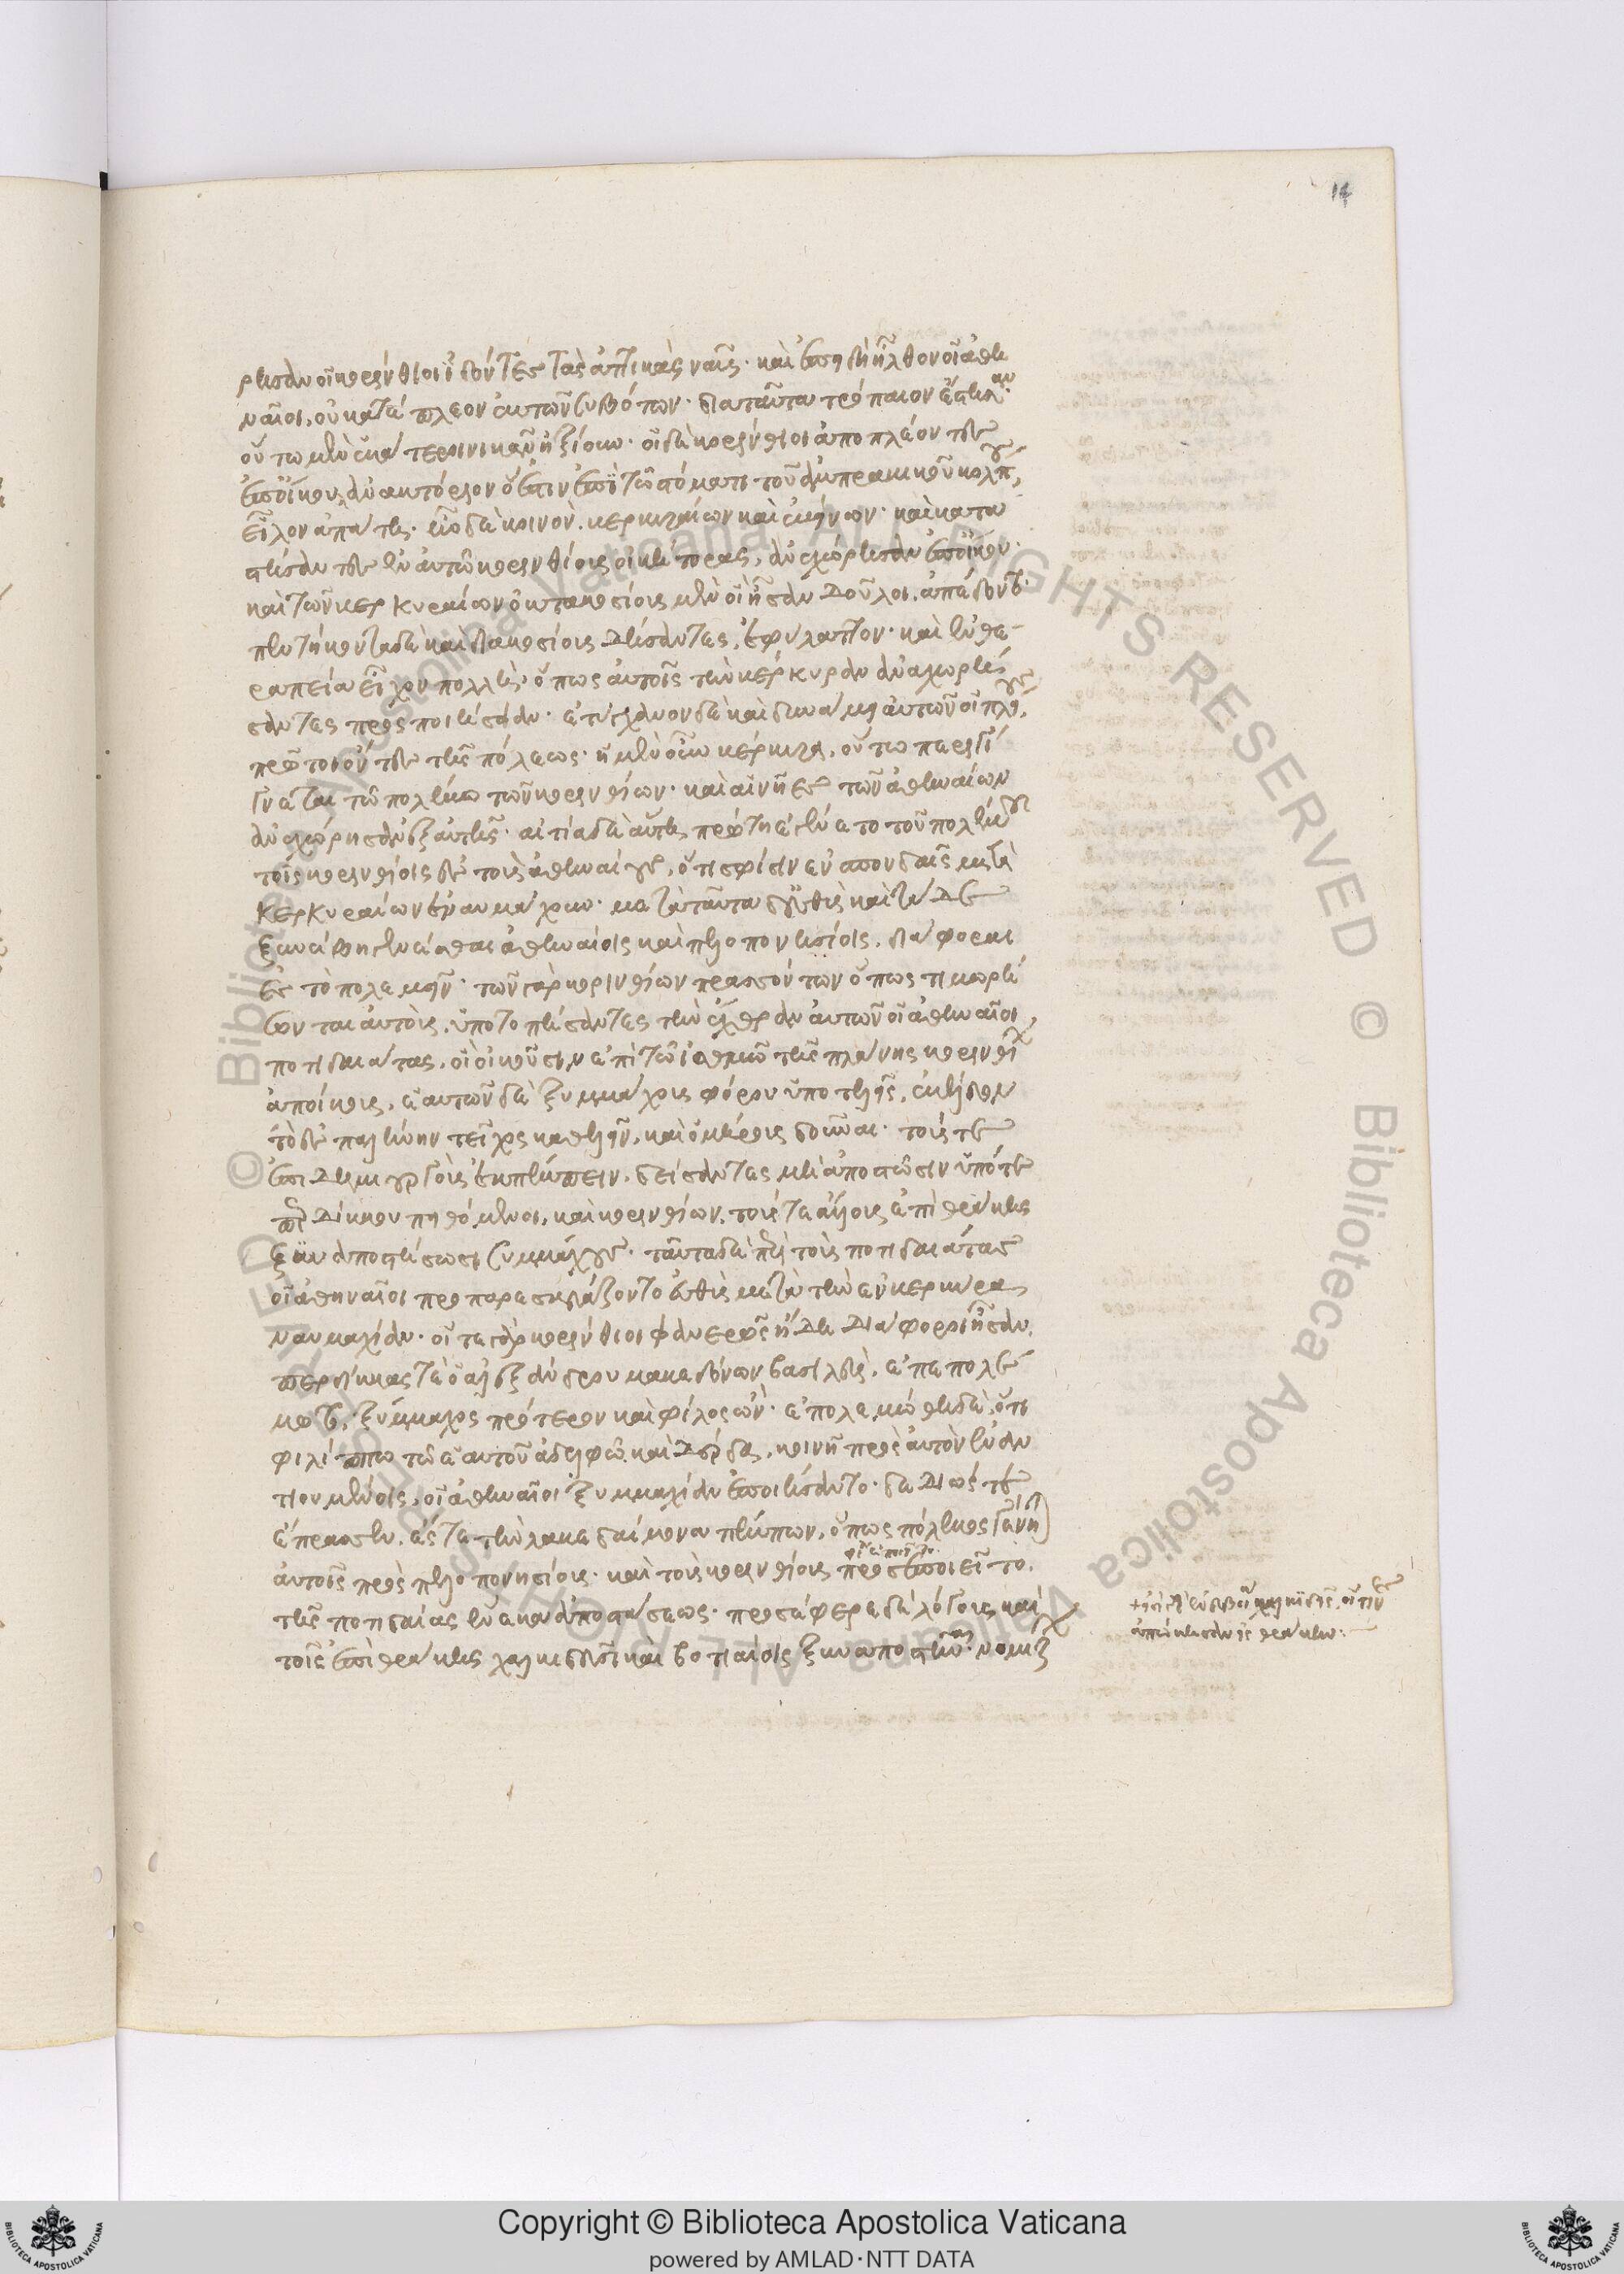 14
ρησαν οἱ κορίνθιοι ἰδόντες τὰς ἀττικὰς ναῦς· καὶ ἐπειδὴ ἦλθον οἱ ἀθη
ναῖοι, οὐκ ἀντέπλεον ἐκ τῶν συβότων· διὰ ταῦτα τρόπαιον ἔστησαν·
οὕτω μὲν ἑκάτεροι νικᾶν ἠξίουν· οἱ δὲ κορίνθιοι ἀποπλέοντες
ἐπ' οἴκου, ἀνακτόριον ὅ ἐστιν ἐπὶ τῶ στόματι τοῦ ἀμπρακικοῦ κόλπου,
εἷλον ἀπάτη· ἦν δὲ κοινὸν κερκυραίων καὶ ἐκείνων· καὶ κατα
στήσαντες ἐν αὐτῶ κορινθίους οἰκήτορας, ἀνεχώρησαν ἐπ' οἴκου·
καὶ τῶν κερκυραίων ὀκτακοσίους μὲν οἳ ἦσαν δοῦλοι, ἀπέδοντο·
πεντήκοντα δὲ καὶ διακοσίους δήσαντες, ἐφύλαττον· καὶ ἐν θε
ραπεία εἶχον πολλῆ· ὅπως αὐτοῖς τὴν κέρκυραν ἀναχωρή
σαντες προσποιήσειαν· ἐτύγχανον δὲ καὶ δυνάμει αὐτῶν οἱ πλείους
πρῶτοι ὄντες τῆς πόλεως· ἡ μὲν οὖν κέρκυρα, οὕτω περιγί
γνεται τῶ πολέμω τῶν κορινθίων· καὶ αἱ νῆες τῶν ἀθηναίων
ἀνεχώρησαν ἐξ αὐτῆς· αἰτία δὲ αὕτη πρώτη ἐγένετο τοῦ πολέμου
τοῖς κορινθίοις ἐς τοὺς ἀθηναίους, ὅτι σφίσιν ἐν σπονδαῖς μετὰ
κερκυραίων ἐναυμάχουν· μετὰ ταῦτα δ' εὐθὺς καὶ τάδε
ξυνέβη γενέσθαι ἀθηναίοις καὶ πελοποννησίοις, διάφορα
ἐς τὸ πολεμεῖν· τῶν γὰρ κορινθίων πρασσόντων ὅπως τιμωρή
σονται αὐτοὺς, ὑποτοπήσαντες τὴν ἔχθραν αὐτῶν οἱ ἀθηναῖοι,
ποτιδαιάτας, οἳ οἰκοῦσιν ἐπὶ τῶ ἰσθμῶ τῆς παλλήνης κορινθίων
ἀποίκους, ἑαυτῶν δὲ ξυμμάχους φόρου ὑποτελεῖς, ἐκέλευον
τὸ ἐς παλλήνην τεῖχος καθελεῖν, καὶ ὁμήρους δοῦναι· τούς τε
ἐπιδημιουργοὺς ἐκπέμπειν· δείσαντες μὴ ἀποστῶσιν ὑπό τε
περδίκκου πειθόμενοι, καὶ κορινθίων, τούς τε ἄλλους ἐπὶ θράκης
ξυναποστήσωσι ξυμμάχους· ταῦτα δὲ περὶ τοὺς ποτιδαιάτας
οἱ ἀθηναῖοι προπαρεσκευάζοντο εὐθὺς μετὰ τὴν ἐν κερκύρα
ναυμαχίαν· οἵ τε γὰρ κορίνθιοι φανερῶς ἤδη διάφοροι ἦσαν,
περδίκκας τε ὁ ἀλεξάνδρου μακεδόνων βασιλεὺς, ἐπεπολέ
μωτο, ξύμμαχος πρότερον καὶ φίλος ὤν· ἐπολεμώθη δὲ, ὅτι
φιλίππω τῶ ἑαυτοῦ ἀδελφῶ καὶ δέρδα, κοινῆ πρὸς αὐτὸν ἐναν
τιουμένοις, οἱ ἀθηναῖοι ξυμμαχίαν ἐποιήσαντο· δεδιώς τε
ἔπρασσεν, ἔς τε τὴν λακεδαίμονα πέμπων, ὅπως πόλεμος γένηται
αὐτοῖς πρὸς πελοποννησίους· καὶ τοὺς κορινθίους προσεποιεῖτο,
τῆς ποτιδαίας ἕνεκα ἀποστάσεως· προσέφερε δὲ λόγους καὶ
τοῖς ἐπὶ θράκης χαλκιδεῦσι καὶ βοτιαίοις ξυναποστῆναι· νομίζ